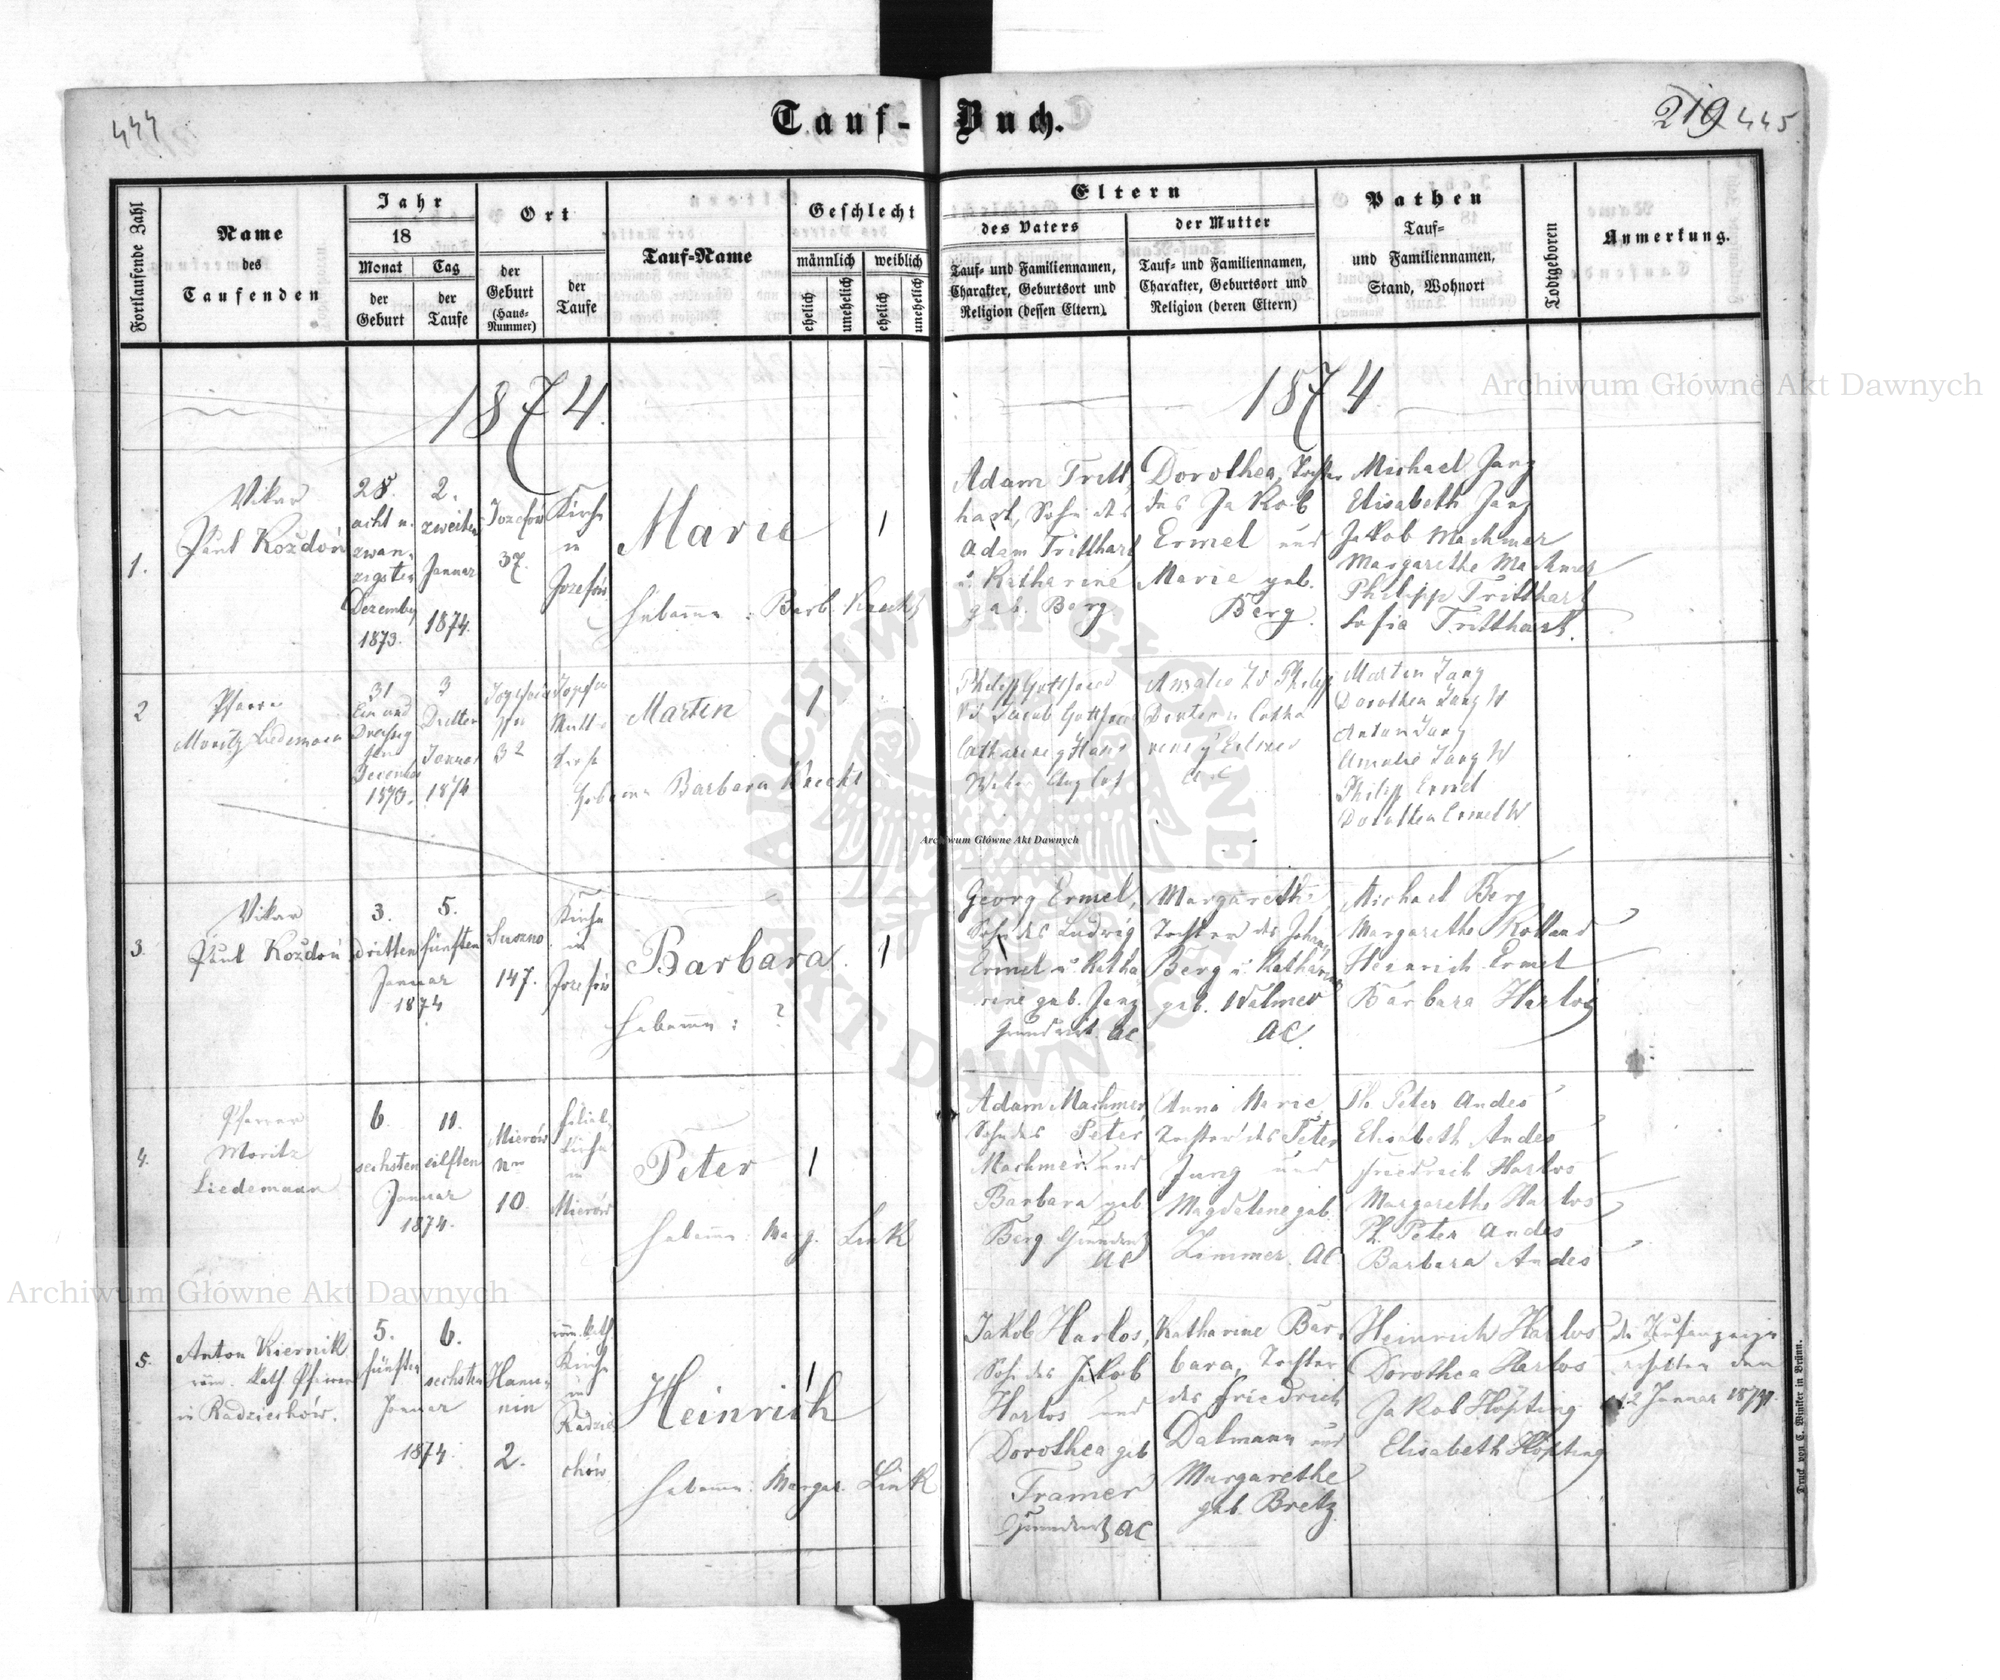 444
Tauf-Buch.
219 445
Fortlaufende Zahl
Name
des
Taufenden
Jahr
18
Monat
Tag
der
Geburt
der
Taufe
Ort
der
Geburt
(Haus-
Nummer)
der
Taufe
Tauf-Name
Geschlecht
männlich
weiblich
ehelich
unehelich
ehelich
unehelich
Eltern
des Vaters
Tauf- und Familiennamen,
Charakter, Geburtsort und
Religion (dessen Eltern).
der Mutter
Tauf- und Familiennamen,
Charakter, Geburtsort und
Religion (deren Eltern)
Pathen
Tauf-
und Familiennamen,
Stand, Wohnort
Todtgeboren
Anmerkung.
1874.
1874
Archiwum Główne Akt Dawnych
1.
Vikar
Paul Koždoń
28.
acht u.
zwan-
zigsten
Dezember
1873.
2.
zweiten
Januar
1874.
Jozefów
37.
Kirche
in
Jozefów
Marie
1
Hebamme: Barb. Knecht
Adam Tritt
hart, Sohn des
Adam Tritthart
u. Katharine
geb. Berg
Dorothea, Tochter
des Jakob
Ermel und
Marie geb.
Berg.
Michael Jang
Elisabeth Jang
Jakob Machmer
Margarethe Machmer
Philipp Tritthart
Sofie Tritthart.
2
Pfarrer
Moritz Liedemann
31
Ein und
Dreissig
sten
December
1873.
3
Dritten
Januar
1874
32
Martin
1
Barbara Knecht
Philipp Gottfried
Jacob Gottfried
Catharine g
Amalie
Philipp
Martin Jang
Dorothea Jang W
Anton Jang
Amalie Jang W
Philipp Ermel
Dorothea Ermel W.
Archiwum Główne Akt Dawnych
3.
Vikar
Paul Koždoń
3.
dritten
5.
fünften
Januar
1874
Suszno
147.
Kirche
in
Jozefów
Barbara.
1
Hebamme: ?
Georg Ermel,
Sohn des Ludwig
Ermel u. Katha
rine geb. Jang
AC.
Margarethe
Tochter des Johann
Berg u. Katharine
geb. Walmer
AC.
Michael Berg
Margarethe Rolland
Heinrich Ermel
Barbara Harlos
4.
Pfarrer
Moritz
Liedemann
6.
sechsten
11.
eilften
Januar
1874.
Mierów
Nro
10.
Filial-
Kirche
in
Mierów
Peter
1
Hebamme: Marg. Link
Adam Machmer,
Sohn des Peter
Machmer und
Barbara geb
Berg
AC
Anna Marie,
Tochter des Peter
Jung und
Magdalene geb.
Zimmer. AC.
Ph. Peter Andes
Elisabeth Andes
Friedrich Harlos
Margarethe Harlos
Ph. Peter Andes
Barbara Andes
Archiwum Główne Akt Dawnych
5.
Anton Kiernik
röm. kath. Pfarrer
in Radziechów.
5.
fünften
6.
sechsten
Januar
1874.
Hanu-
nin
2.
röm. kath
Kirche
in
Radzie
chów
Heinrich
1
Hebamme: Margar. Link
Jakob Harlos,
Sohn des Jakob
Harlos und
Dorothea geb
Tramer
AC
Katharine Bar-
bara, Tochter
des Friedrich
Dalmann und
Margarethe
geb. Bretz.
Heinrich Harlos
Dorothea Harlos
Jakob Höpting
Elisabeth Höpting
die Taufanzeige
erhalten den
12 Januar 1874.
Druck von C. Winiker in Brünn.
ARCHIWUM GŁÓWNE AKT DAWNYCH